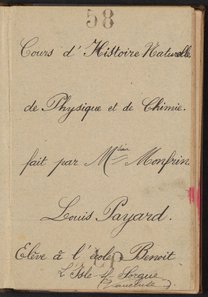 58
Cours d'Histoire Naturelle,
de Physique et de Chimie.
fait par Melle Monfrin
Louis Payard.
Elève à l'école Benoit
L'Isle s/ Sorgue
Vaucluse